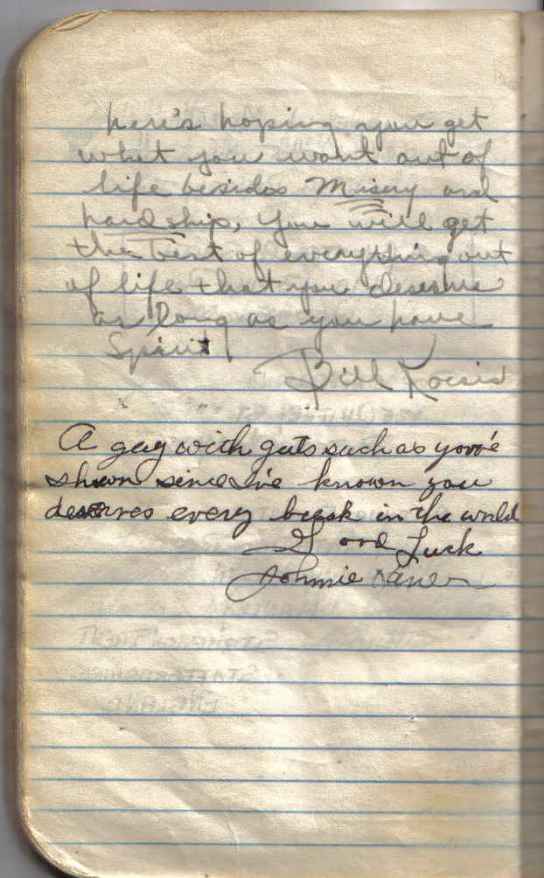 here's hoping you get
what you want out of
life besides Misery and
hardship, you will get
the best of everything out
of life that you deserve
as long as you have
Spirit
Bill
A guy with guts such as you've
shown since I've known you
deserves every break in the world
Good Luck
Johnnie
STAFFORDSHIRE
ENGLAND